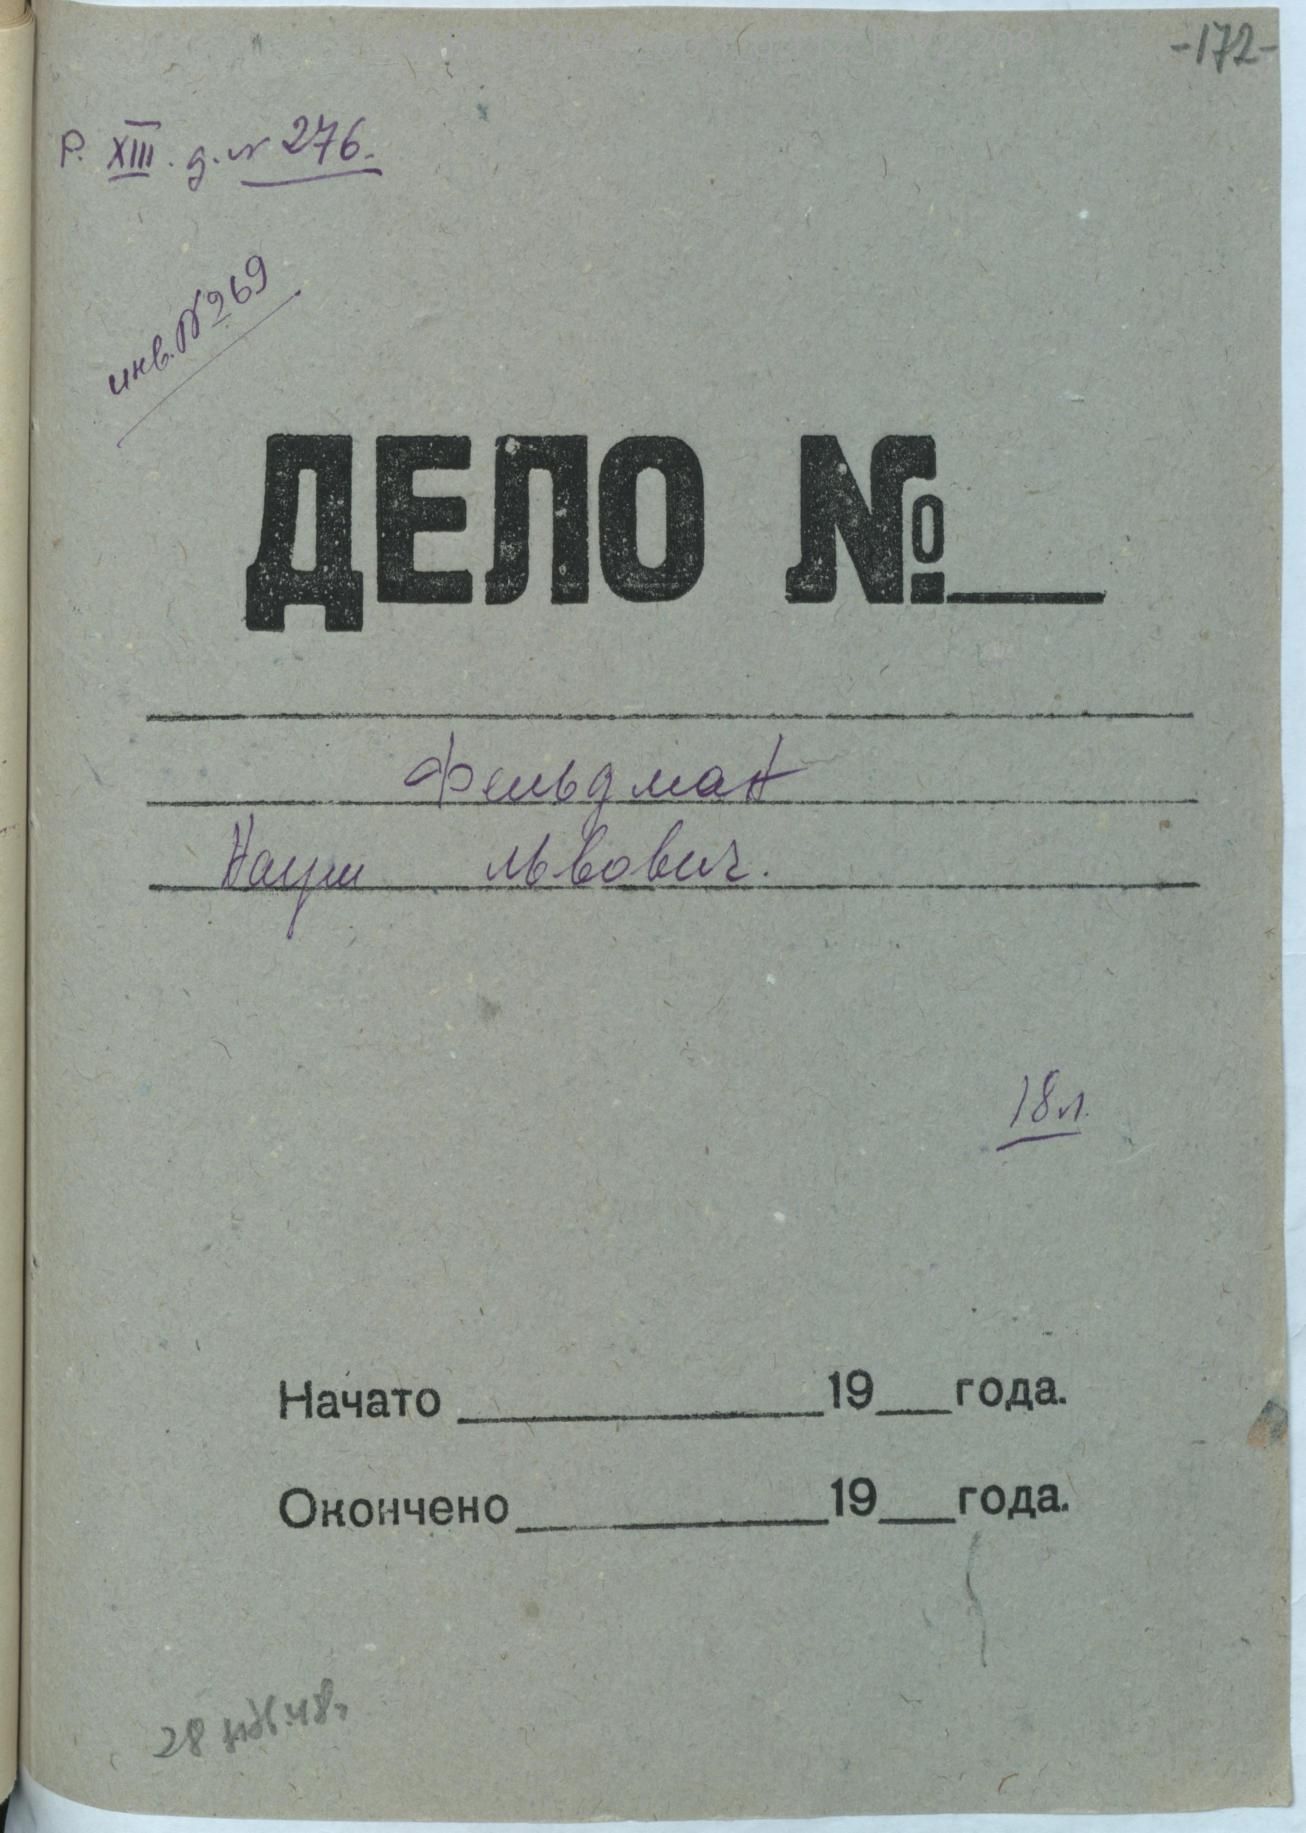 -172-
Р. XIII. д. № 276.
инв. № 269
ДЕЛО №
Фельдман
Наум Львович.
18 л.
Начато 19 года.
Окончено 19 года.
28
48г.